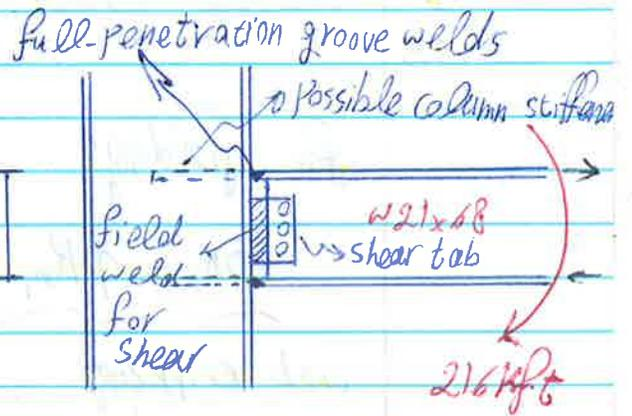 full-penetration groove welds
possible column stiffena
field
weld
for
shear
W21x68
shear tab
216 kf.t